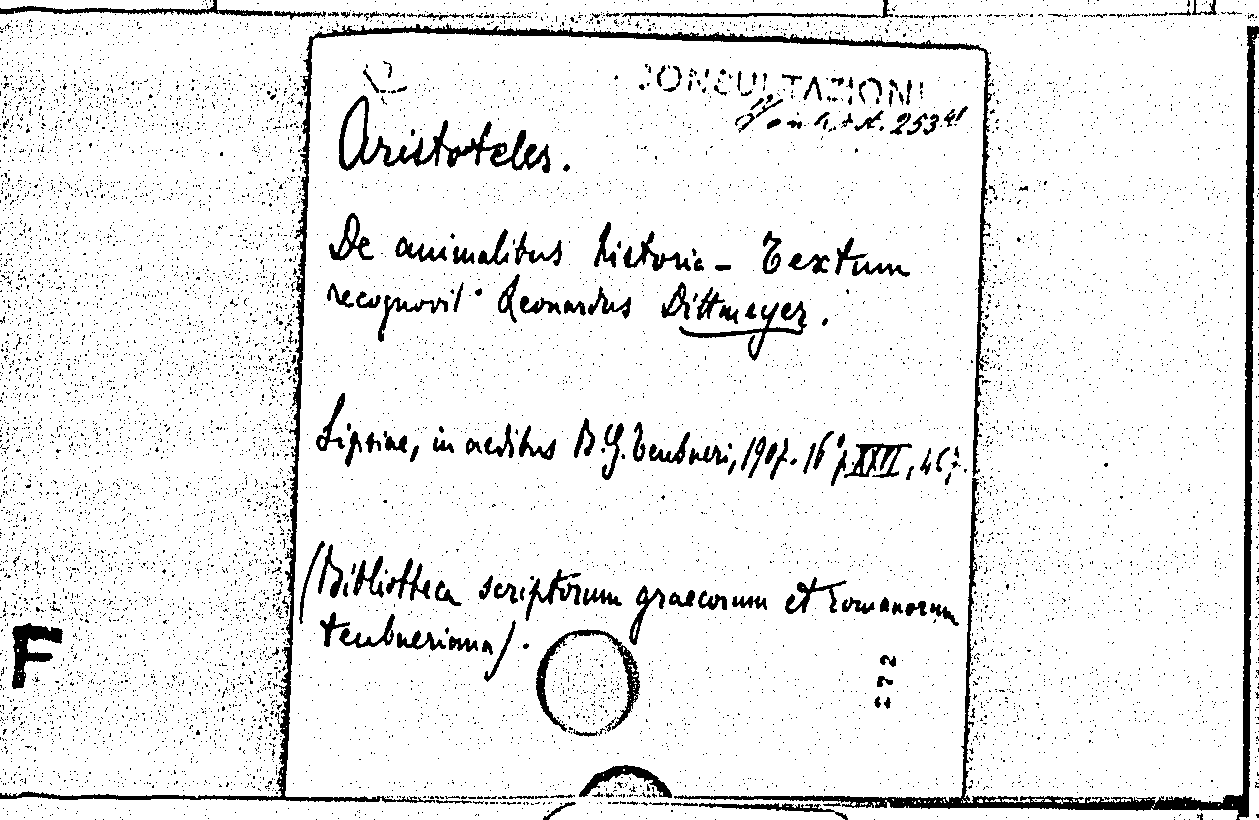 CONSULTAZIONI
253
Aristoteles.
De animalibus historia - Textum
recognovit Leonardus Dittmeyer.
Lipsiae, in aedibus B. G. Teubneri, 1907. 16° p. XXVI, 467.
(Bibliotheca scriptorum graecorum et romanorum
teubneriana).
272
F